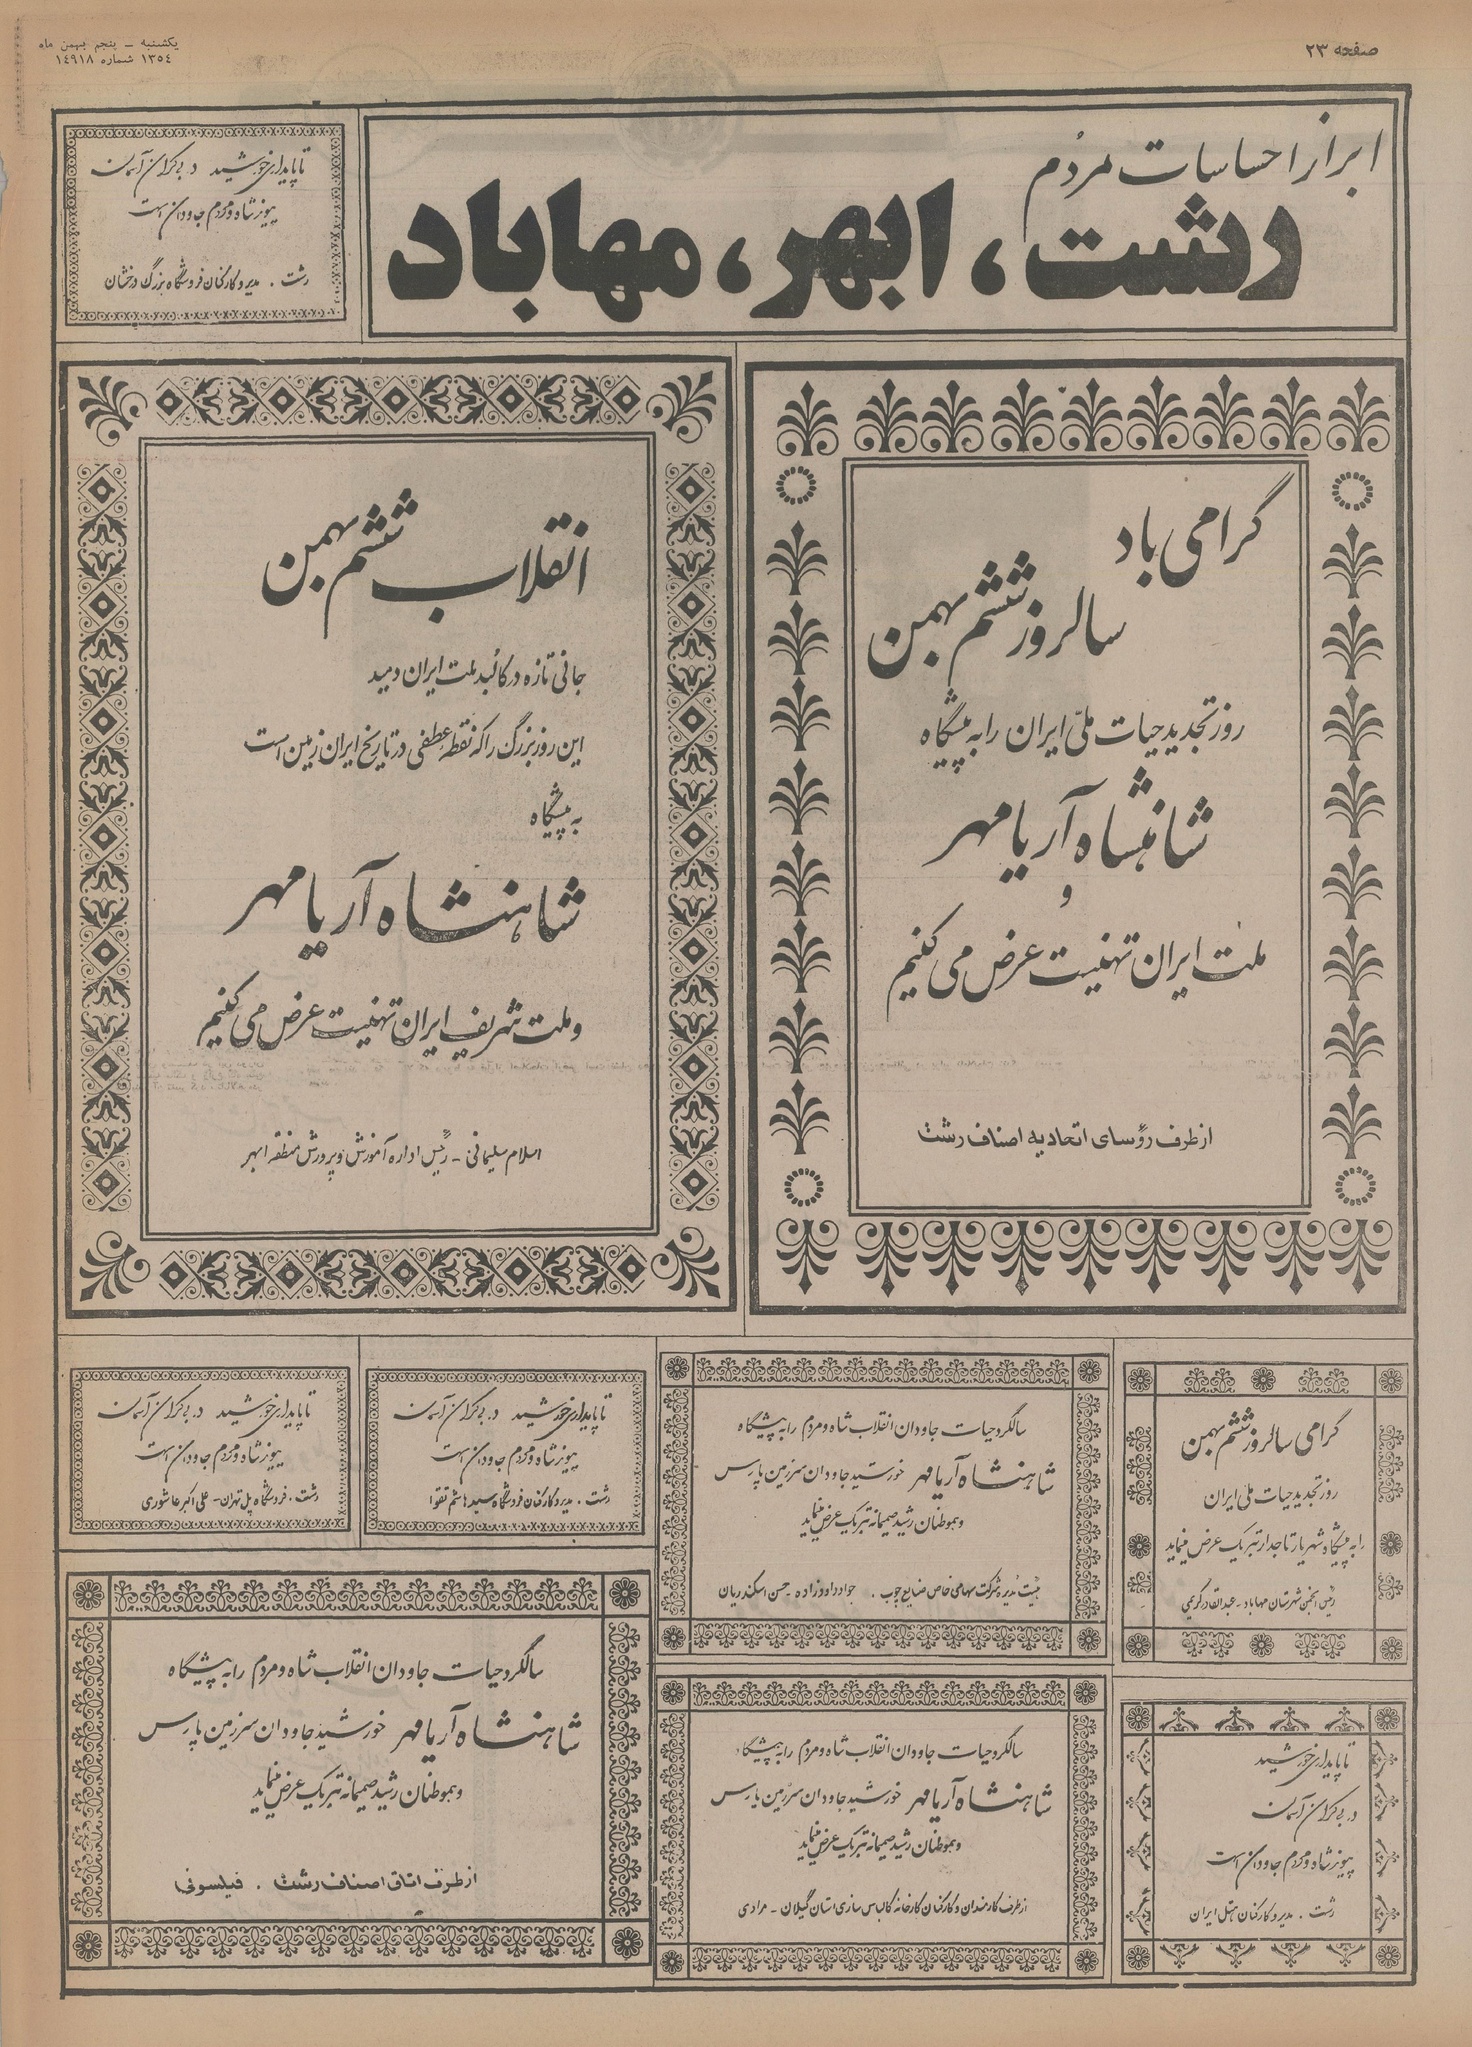 صفحه ۲۳
یکشنبه ـ پنجم بهمن ماه
۱۳۵۴ شماره ۱۴۹۱۸
ابراز احساسات مردم
رشت، ابهر، مهاباد
تا پایداری خورشید در بی کران آسمان
پیوند شاه و مردم جاودان است
رشت . مدیر و کارکنان فروشگاه بزرگ درخشان
گرامی باد
سالروز ششم بهمن
روز تجدید حیات ملی ایران را به پیشگاه
شاهنشاه آریامهر
و
ملت ایران تهنیت عرض می کنیم
از طرف رؤسای اتحادیه اصناف رشت
انقلاب ششم بهمن
جانی تازه در کالبد ملت ایران دمید
این روز بزرگ را که نقطه عطفی در تاریخ ایران زمین است
به پیشگاه
شاهنشاه آریامهر
و ملت شریف ایران تهنیت عرض می کنیم
اسلام سلیمانی ـ رئیس اداره آموزش و پرورش منطقه ابهر
گرامی سالروز ششم بهمن
روز تجدید حیات ملی ایران
را به پیشگاه شهریار تاجدار تبریک عرض مینماید
رئیس انجمن شهرستان مهاباد ـ عبدالقادر کریمی
سالگرد حیات جاودان انقلاب شاه و مردم را به پیشگاه
شاهنشاه آریامهر خورشید جاودان سرزمین پارس
و هموطنان رشید صمیمانه تبریک عرض مینماید
هیئت مدیره شرکت سهامی خاص صنایع چوب . جواد داودزاده ـ حسن اسکندریان
تا پایداری خورشید در بی کران آسمان
پیوند شاه و مردم جاودان است
رشت . مدیر و کارکنان فروشگاه سید هاشم تقوا
تا پایداری خورشید در بی کران آسمان
پیوند شاه و مردم جاودان است
رشت . فروشگاه پل تهران ـ علی اکبر عاشوری
تا پایداری خورشید
در بی کران آسمان
پیوند شاه و مردم جاودان است
رشت . مدیر و کارکنان هتل ایران
سالگرد حیات جاودان انقلاب شاه و مردم را به پیشگاه
شاهنشاه آریامهر خورشید جاودان سرزمین پارس
و هموطنان رشید صمیمانه تبریک عرض مینماید
از طرف کارمندان و کارکنان کارخانه کالباس سازی استان گیلان ـ مرادی
سالگرد حیات جاودان انقلاب شاه و مردم را به پیشگاه
شاهنشاه آریامهر خورشید جاودان سرزمین پارس
و هموطنان رشید صمیمانه تبریک عرض مینماید
از طرف اتاق اصناف رشت . فیلسونی